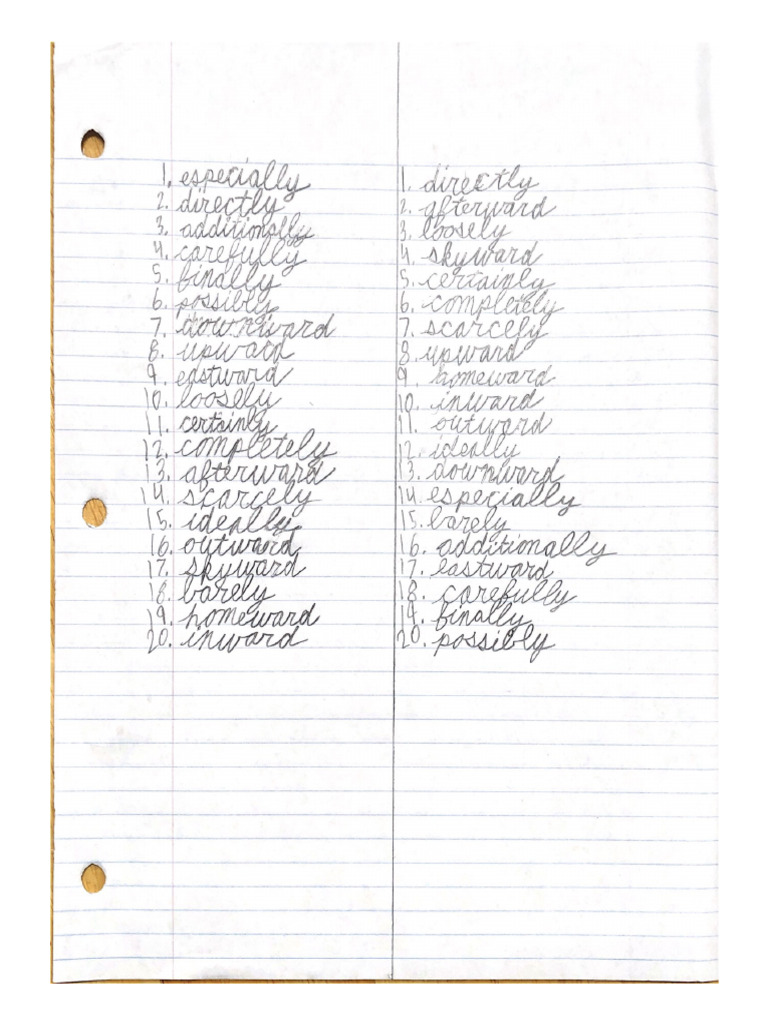 1. especially
2. directly
3. additionally
4. carefully
5. finally
6. possibly
7. downward
8. upward
9. eastward
10. loosely
11. certainly
12. completely
13. afterward
14. scarcely
15. ideally
16. outward
17. skyward
18. barely
19. homeward
20. inward
1. directly
2. afterward
3. loosely
4. skyward
5. certainly
6. completely
7. scarcely
8. upward
9. homeward
10. inward
11. outward
12. ideally
13. downward
14. especially
15. barely
16. additionally
17. eastward
18. carefully
19. finally
20. possibly